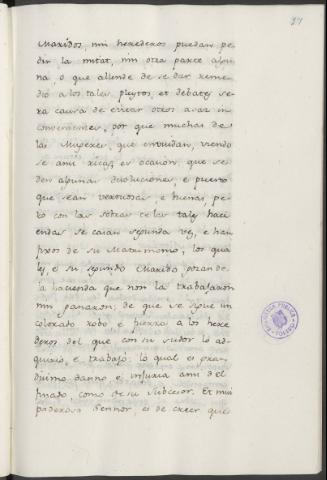 27
Maridos, nin herederos puedan pe
dir la mitat, nin otra parte algu
na o que allende de se dar reme
dio a los tales pleytos, et debates se
ra causa de evitar otros asaz in
convenientes, por que muchas de
las Mugeres, que enviudan, viendo
se ansi ricas es ocasion, que se
den algunas disoluciones, e puesto
que sean vertuosas, e buenas, pe
ro con las sobras de las tales haci
endas se casan segunda vez, e han
fixos de su Matrimonio, los qua
les, e su segundo Marido gozan de
la hacienda que non la trabajaron
nin ganaron; de que se sigue un
colorado robo e fuerza a los here
deros del que con su sudor lo ad
quirio, e trabajo: lo qual es gran
disimo danno e injuria ansi del
finado, como de su subcesor. Et mui
poderoso Sennor, es de creer que